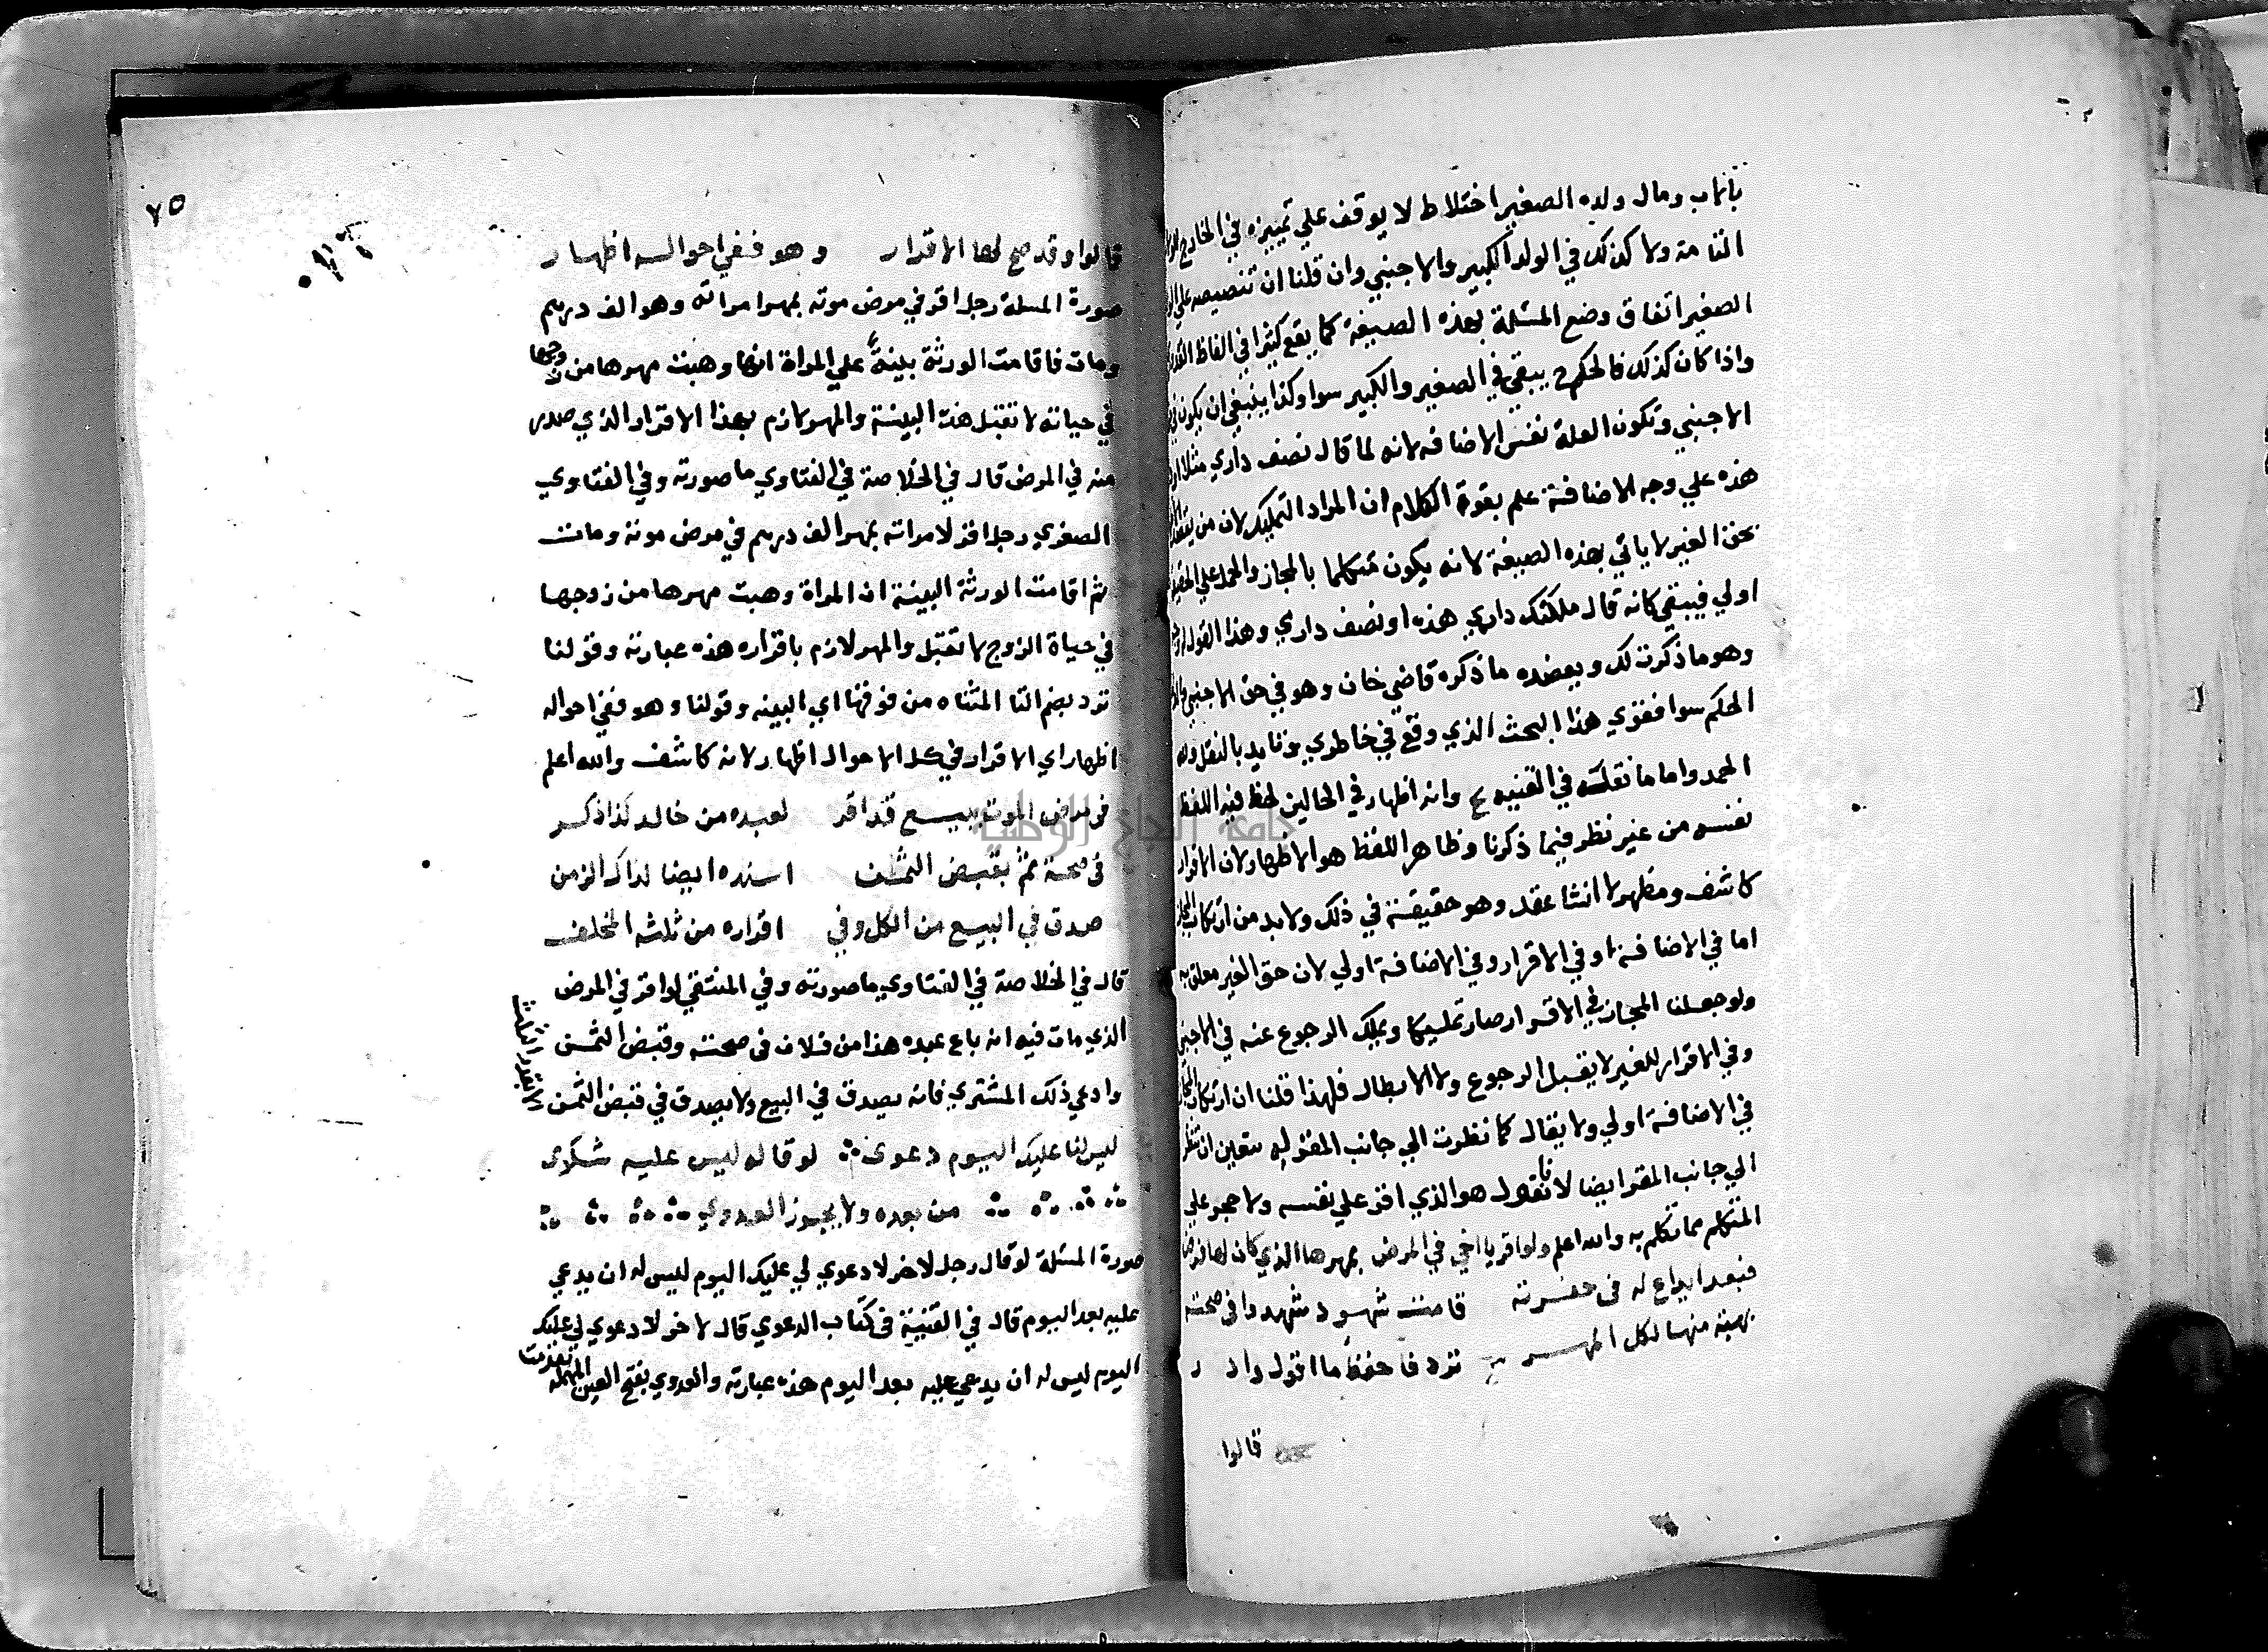 بأب ومال ولده الصغير اختلاط لا يوقف علي تمييزه في الخارج
التامة ولا كذلك في الولد الكبير والاجنبي وان قلنا ان تنصيصه علي
الصغير اتفاق وضع المسئلة بهذه الصيغة كما يقع كثيرا في الفاظ
واذا كان كذلك فالحكم ح يبقي في الصغير والكبير سوا وكذا ينبغي ان يكون في
الاجنبي وتكون العلة نفس الاضافه لانه لما قال نصف داري مثلا او
هذه علي وجه الاضافة علم بقوة الكلام ان المراد التمليك لان من يقصد
بحق الغير لا ياتي بهذه الصيغة لانه يكون متكلما بالمجاز والحمل علي الحقيقة
اولي فيبقي كانه قال ملكتك داري هذه او نصف داري وهذا القول
وهو ما ذكرت لك ويعضده ما ذكره قاضي خان وهو في حق الاجنبي
الحكم سوا فقوي هذا البحث الذي وقع في خاطري وتايد بالنقل ولله
الحمد واما ما نقلته في القنيه ع وانه اظهار في الحالين لحظ فيه اللفظ
نفسه من غير نظر فيما ذكرنا وظاهر اللفظ هو الاظهار لان الاقرار
كاشف ومظهر لا انشا عقد وهو حقيقته في ذلك ولا بد من ارتكاب المجاز
اما في الاضافة او في الاقرار وفي الاضافة اولي لان حق الغير معلق به
ولو جعلنا المجاز في الاقرار صار تمليكا ويملك الرجوع عنه في الاجنبي
وفي الاقرار للغير لا يقبل الرجوع ولا الابطال فلهذا قلنا ان ارتكاب المجاز
في الاضافة اولي ولا يقال كما نظرت الي جانب المقر له يتعين ان تنظر
الي جانب المقر ايضا لانا نقول هو الذي اقر علي نفسه ولا حجر علي
المتكلم مما تكلم به والله اعلم ولو اقر يا اخي في المرض بمهرها الذي كان لها فرض
فبعد ايداع له في حفرته قامت شهود شهدوا في صحته
بهبة منها لكل المهر ترد فاحفظ ما اقول واد ر
قالوا
٧٥
قالوا وقد صح لها الاقرار وهو ففي احواله اظهار
صورة المسلة رجل اقر في مرض موته بمهر امراته وهو الف درهم
ومات فاقامت الورثة بينة علي المراة انها وهبت مهرها من زوجها
في حياته لا تقبل هذه البينة والمهر لازم بهذا الاقرار الذي صدر
منه في المرض قال في الخلاصة في الفتاوي ما صورته وفي الفتاوي
الصغري رجل اقر لامراته بمهر الف درهم في مرض موته ومات
ثم اقامت الورثة البينة ان المراة وهبت مهرها من زوجها
في حياة الزوج لا تقبل والمهر لازم باقراره هذه عبارته وقولنا
ترد بضم التا المثناه من فوقها اي البينه وقولنا وهو ففي احواله
اظهار اي الاقرار في كل الاحوال اظهار لانه كاشف والله اعلم
في مرض الموت ببيع قد اقر لعبده من خالد كذا ذكر
في صحة ثم بقبض الثمن اسنده ايضا لذاك الزمن
صدق في البيع من الكل وفي اقراره من ثلثه المخلف
قال في الخلاصة في الفتاوي ما صورته وفي المنتقي لو اقر في المرض
الذي مات فيه انه باع عبده هذا من فلان في صحته وقبض الثمن
وادعي ذلك المشتري فانه يصدق في البيع ولا يصدق في قبض الثمن
الا بقدر الثلث
ليس لنا عليك اليوم دعوى لو قال وليس عليه شكوى
من بعده ولا يجوز العدوي
صورة المسئلة لو قال رجل لاخر لا دعوي لي عليك اليوم ليس له ان يدعي
عليه بعد اليوم قال في القنية في كتاب الدعوي قال لاخر لا دعوي لي عليك
اليوم ليس له ان يدعي عليه بعد اليوم هذه عبارته والعدوي بفتح العين المهملة